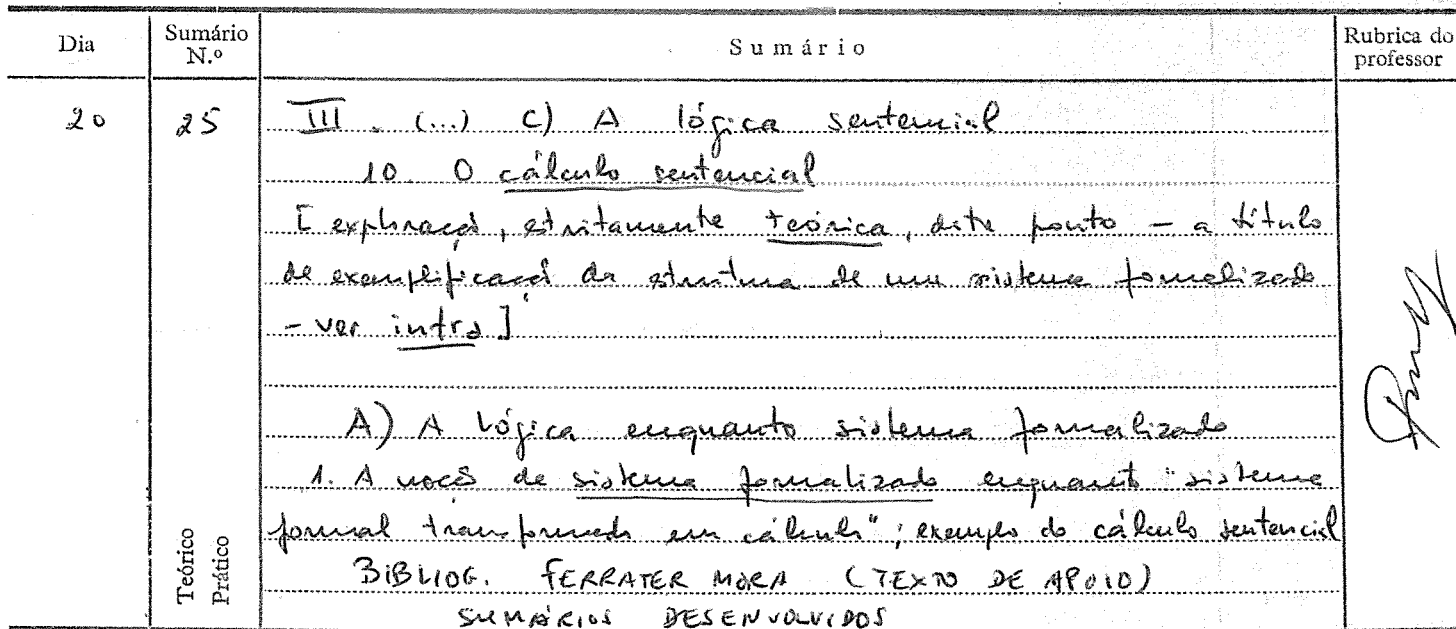 Dia Sumário N.º Sumário Rubrica do professor
20 25 III. (...) C) A lógica sentencial
10. O cálculo sentencial
[exploração, estritamente teórica, deste ponto – a título
de exemplificação da estrutura de um sistema formalizado
– ver infra]
A) A Lógica enquanto sistema formalizado
1. A noção de sistema formalizado enquanto "sistema
formal transformado em cálculo"; exemplo do cálculo sentencial
BIBLIOG. FERRATER MORA (TEXTO DE APOIO)
SUMÁRIOS DESENVOLVIDOS
Teórico
Prático